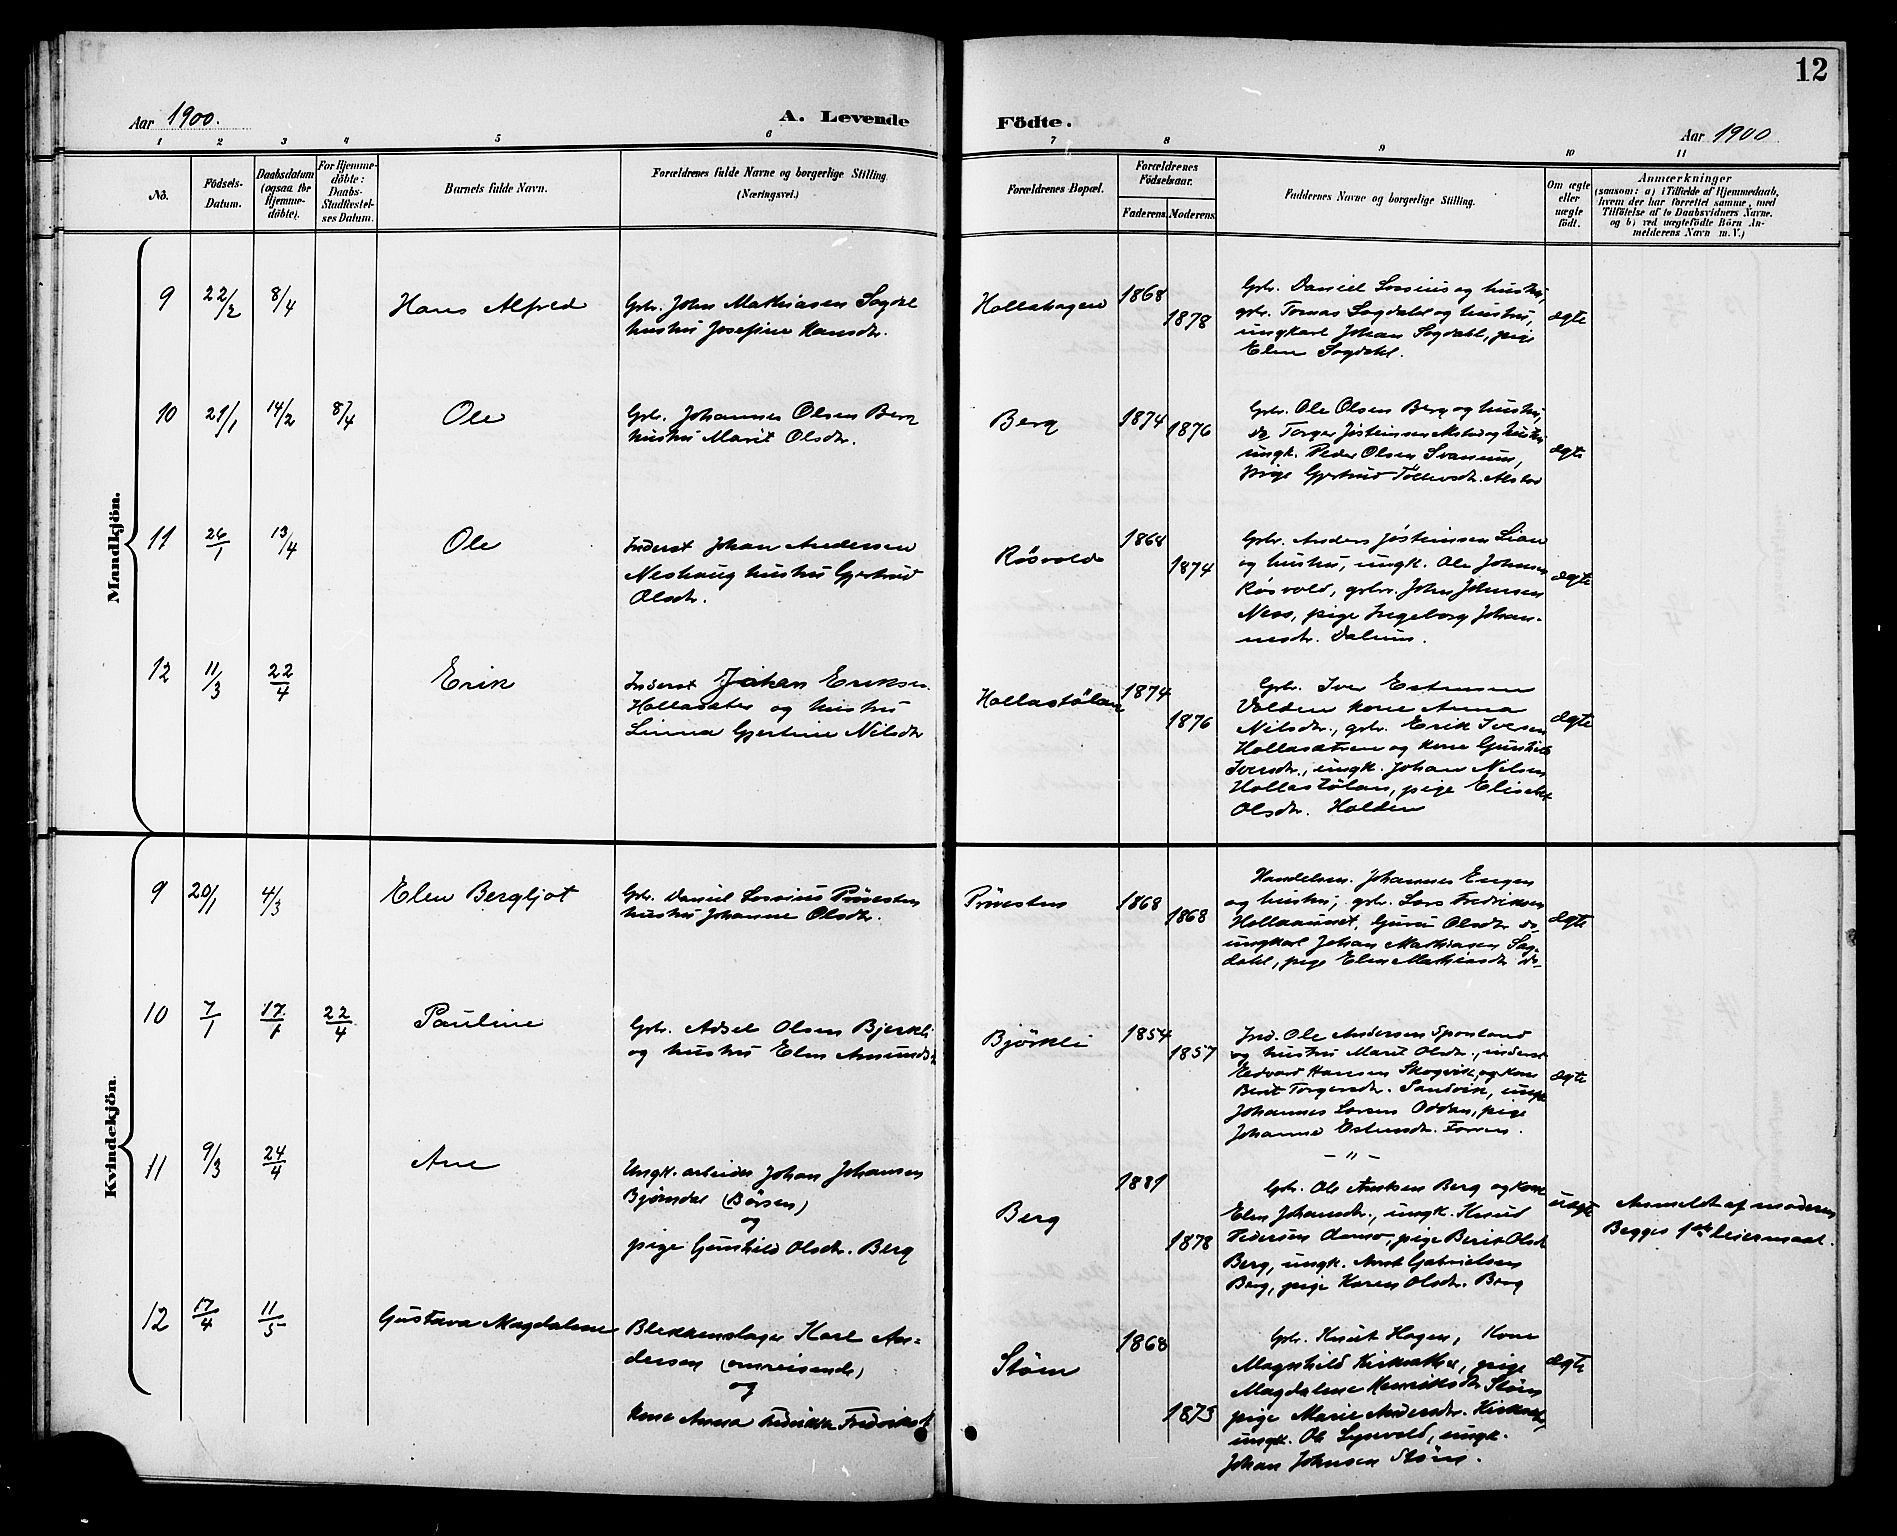 12
Aar 1900.
A. Levende Födte.
Aar 1900
1 2 3 4 5 6 7 8 9 10 11
No.
Födsels-
Datum.
Daabsdatum
(ogsaa for
Hjemme-
döbte).
For Hjemme-
döbte:
Daabs-
Stadfæstel-
ses Datum.
Barnets fulde Navn.
Forældrenes fulde Navne og borgerlige Stilling
(Næringsvei.)
Forældrenes Bopæl.
Forældrenes
Födselsaar.
Faderens Moderens
Faddernes Navne og borgerlige Stilling.
Om ægte
eller
uægte
födt.
Anmærkninger
(saasom: a) i Tilfælde af Hjemmedaab,
hvem der har forrettet samme, med
Tilföielse af to Daabsvidners Navne.
og b) ved uægtefödte Börn An-
melderens Navn m. V.)
Mandkjön.
9 22/2 8/4 Hans Alfred
Gbr. John Mathiasen Sogdal
hustru Josefine Hansdr.
Hollahagen 1868 1878
Gbr. Daniel Lossius og hustru,
gbr. Tomas Sogdahl og hustru,
ungkarl Johan Sogdahl, pige
Elen Sogdahl.
ægte
10 21/1 14/2 8/4 Ole
Gbr. Johannes Olsen Berg
hustru Marit Olsdr.
Berg 1874 1876
Gbr. Ole Olsen Berg og hustru,
do Torger Jósteinsen Alstad og hustru
ungk. Peder Olsen Svanem,
pige Gjertrud Tollevsdr. Alstad
ægte
11 26/1 13/4 Ole
Inderst Johan Andersen
Neshaug hustru Gjertrud
Olsdr.
Røsvold 1868 1874
Gbr. Anders Jósteinsen Lian
og hustru, ungk. Ole Johnsen
Røsvold, gbr. John Johnsen
Ness, pige Ingeborg Johan-
nesdr. Dalum.
ægte
12 11/3 22/4 Erik
Inderst Johan Eriksen
Hollasæter og hustru
Linna Gjertine Nilsdr
Hollastølan 1874 1876
Gbr. Iver Estensen
Volden kone Anna
Nilsdr., gbr. Erik Iversen
Hollasætren og kone Gunhild
Iversdr., ungk. Johan Nilsen
Hollastølan, pige Elisabet
Olsdr. Holden
ægte
Kvindekjön.
9 20/1 4/3 Elen Bergljot
Gbr. Daniel Lossius Prövesten
hustru Johanne Olsdr.
Prövesten 1868 1868
Handelsm. Johannes Engen
og hustru, gbr. Lars Fredriksen
Hollaaunet, Guru Olsdr do,
ungkarl Johan Mathiasen Sog-
dahl, pige Elen Mathiasdr do-
ægte
10 7/1 17/1 22/4 Pauline
Gbr. Adsel Olsen Bjerkli
og hustru Elen Amundsdr
Bjórkli 1854 1857
Ind. Ole Andersen Sponland
og hustru Marit Olsdr., inderst
Edvard Hansen Skogvik og kone
Berit Torgersdr. Sandvik, ungk
Johannes Larsen Oddan, pige
Johanna Estensdr. Forren.
ægte
11 9/3 24/4 Ane
Ungk. arbeider Johan Johansen
Bjørndal (Børsen)
og
pige Gunhild Olsdr. Berg
Berg 1881 1878
– " –
Gbr. Ole Arntsen Berg og kone
Elen Johansdr., ungk. Knud
Pedersen Damo, pige Berit Olsdr
Berg, ungk. Arnt Gabrielsen
Berg, pige Karen Olsdr. Berg
uægte
Anmeldt af moderen
Begges 1ste leiermaal.
12 17/4 11/5 Gustava Magdalene
Blikkenslager Karl An-
dersen (omreisende)
og
kone Anna Fredrikka Fredriksdr
Stören 1868 1873
Gbr. Knut Hagen, kone
Magnhild Kirksæther, pige
Magdalene Henriksdr Stören
pige Marie Andersdr. Kirksæt,
ungk. Ole Lysvold, ungk.
Johan Johnsen Stören.
ægte